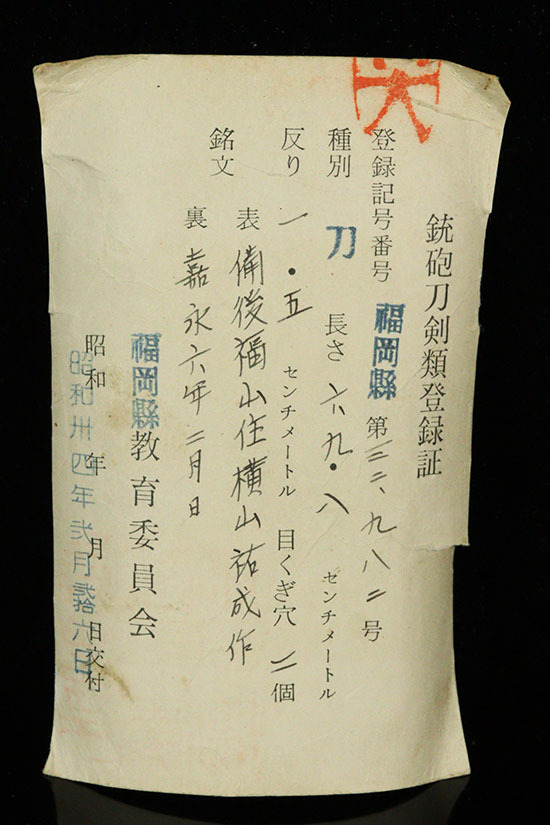 銃砲刀剣類登録証
登録記号番号 福岡縣 第三二、九八二号
種別 刀 長さ 六九・八 センチメートル
反り 一・五 センチメートル 目くぎ穴 二個
銘文 表 備後福山住横山祐成作
裏 嘉永六年二月日
福岡縣教育委員会
昭和 年 月 日交付
昭和卅四年弐月拾六日